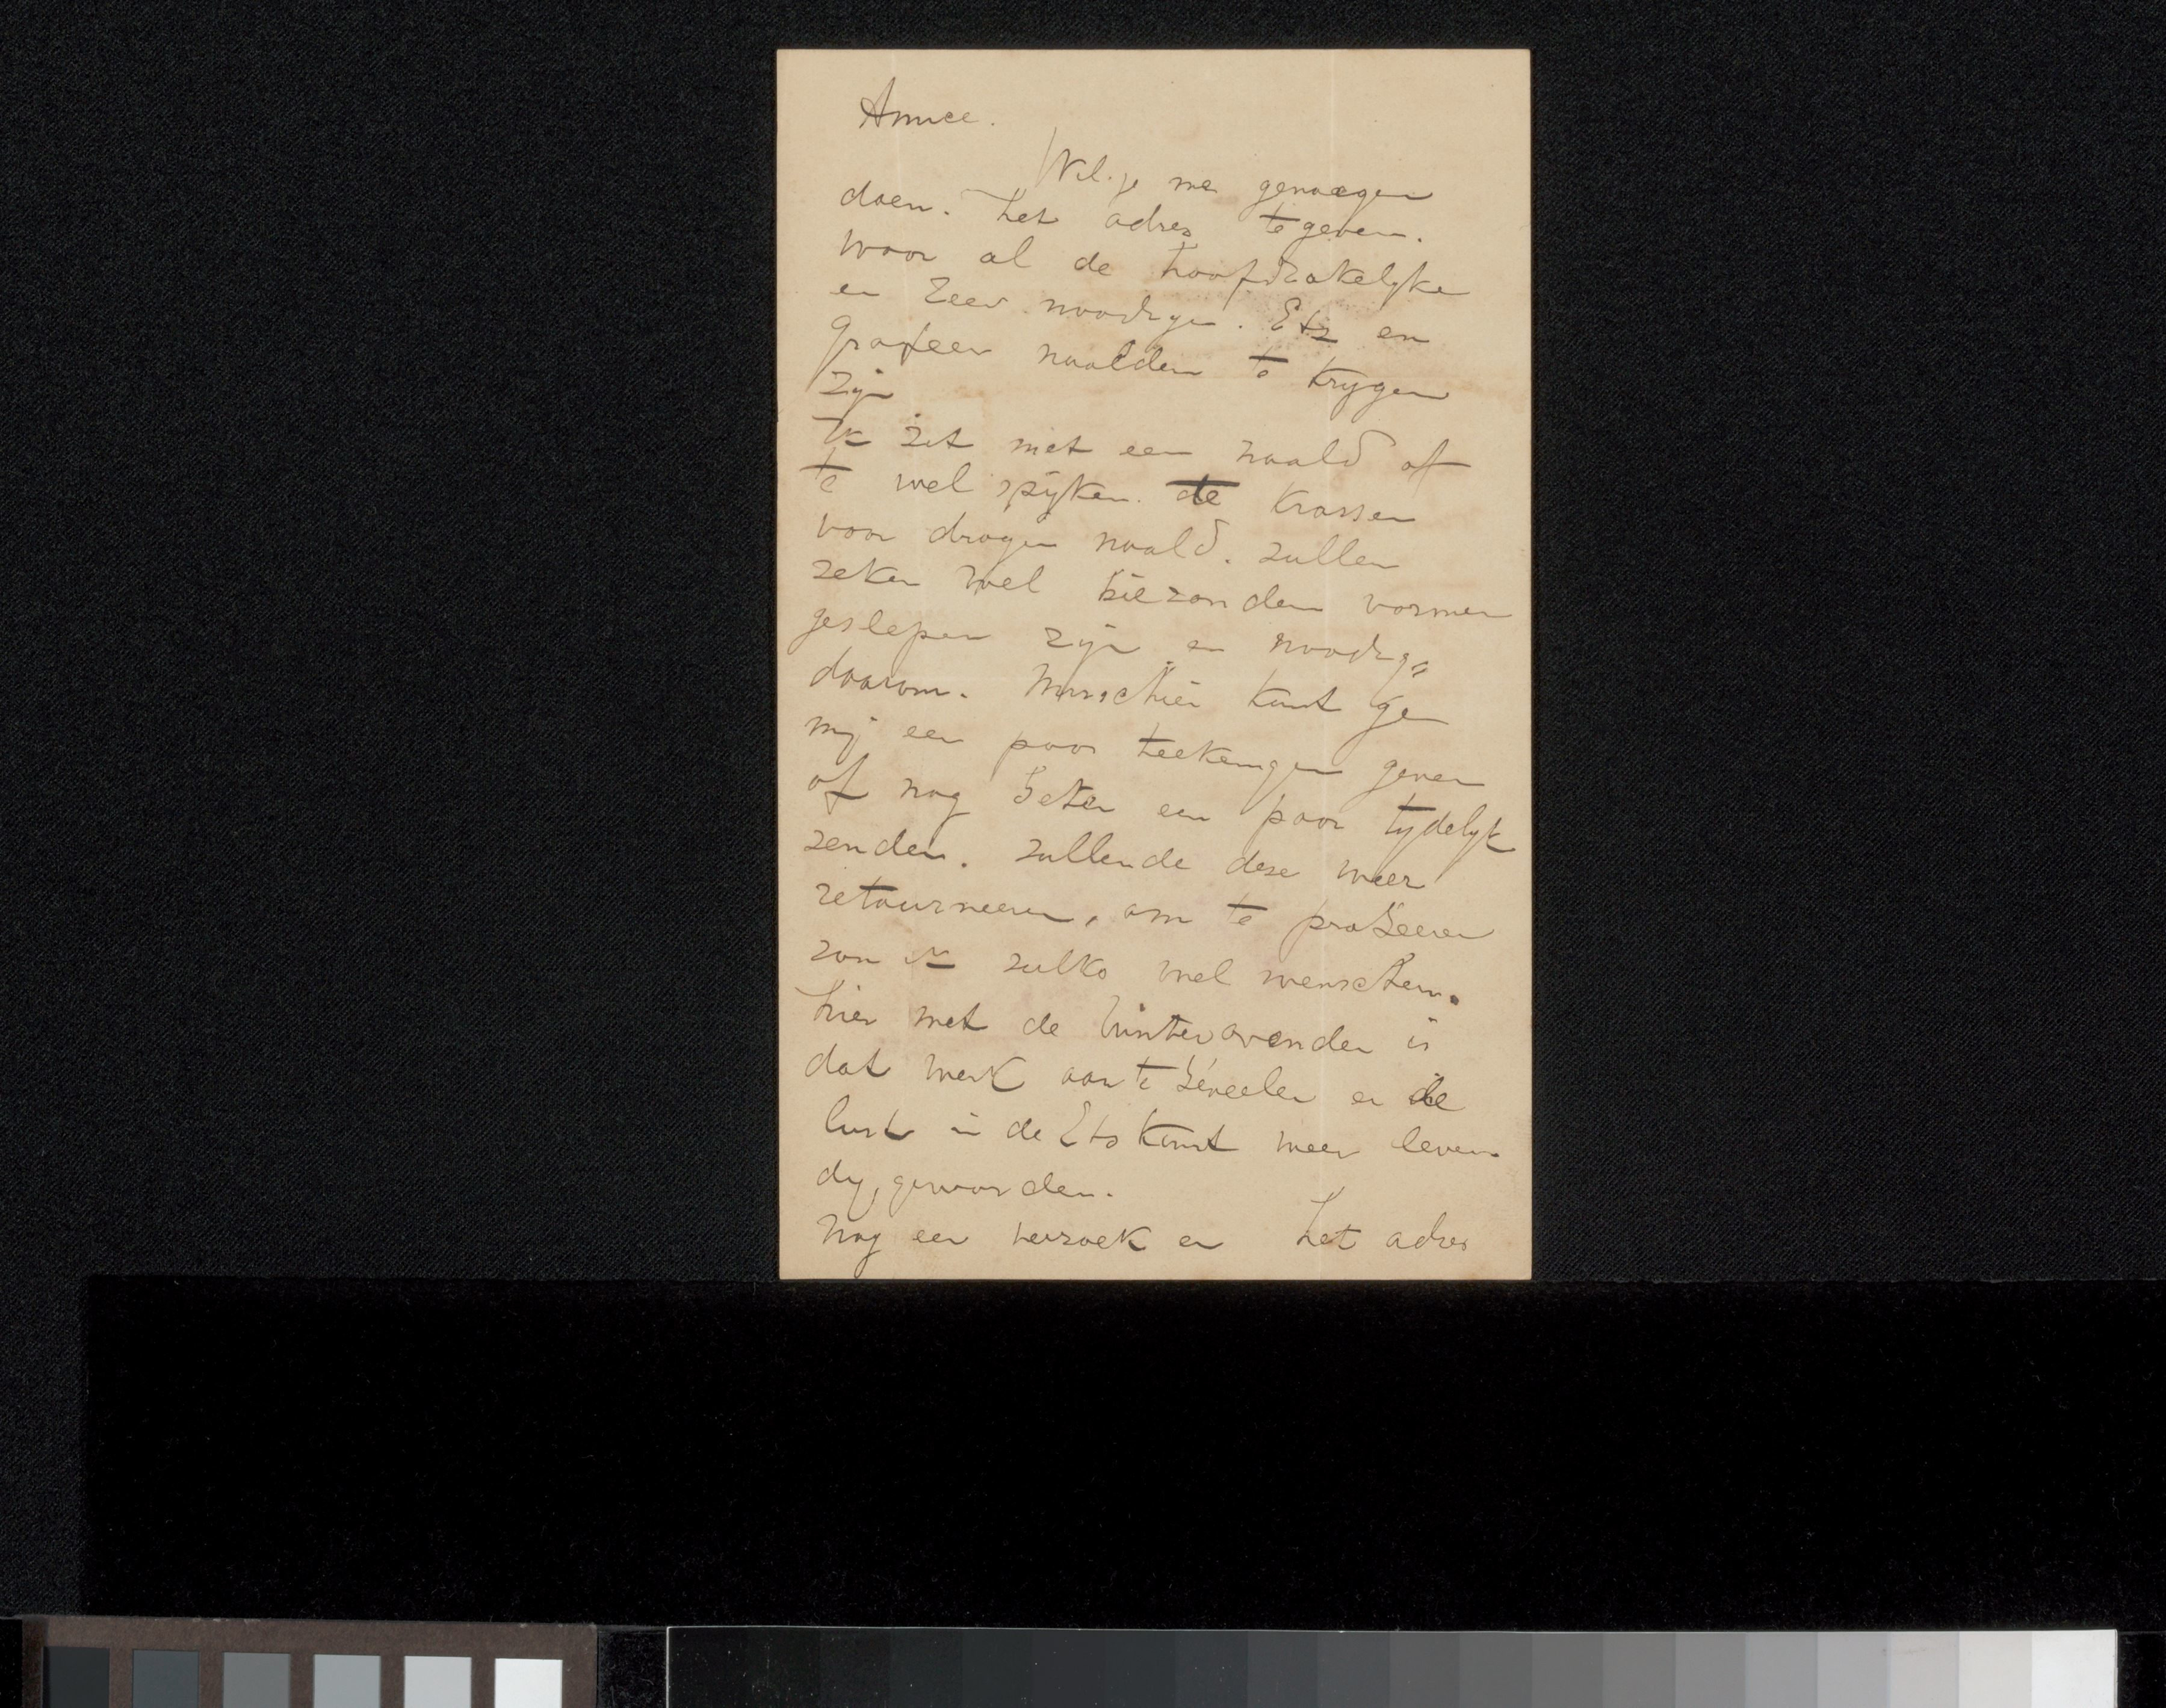 Amice.
Wil je me genoegen
doen. het adres te geven.
waar al de hoofdzakelyke
en zeer noodige. Ets en
grafeer naalden te krygen
zijn
Ik zit met een naald of
te wel spijken. de krassen
voor drogen naald. zullen
zeker wel biezondere vormen
geslepen zijn en noodig
daarom. Misschien kunt ge
mij een paar teekeningen geven
of nog beter een paar tydelyk
zenden. zullende deze weer
retourneeren, om te probeeren
zou ik zulks wel wenschen.
hier met de winteravonden is
dat werk aan te beveelen en de
lust in de Etskunst weer leven
dig, geworden.
Nog een verzoek en het adres